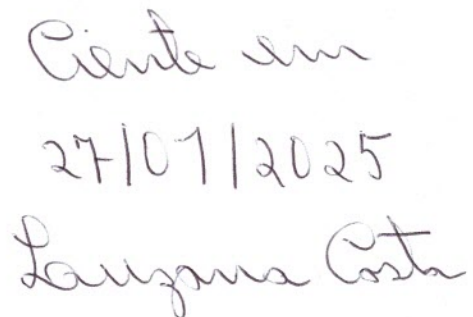 Ciente em
27/01/2025
Lauzana Costa